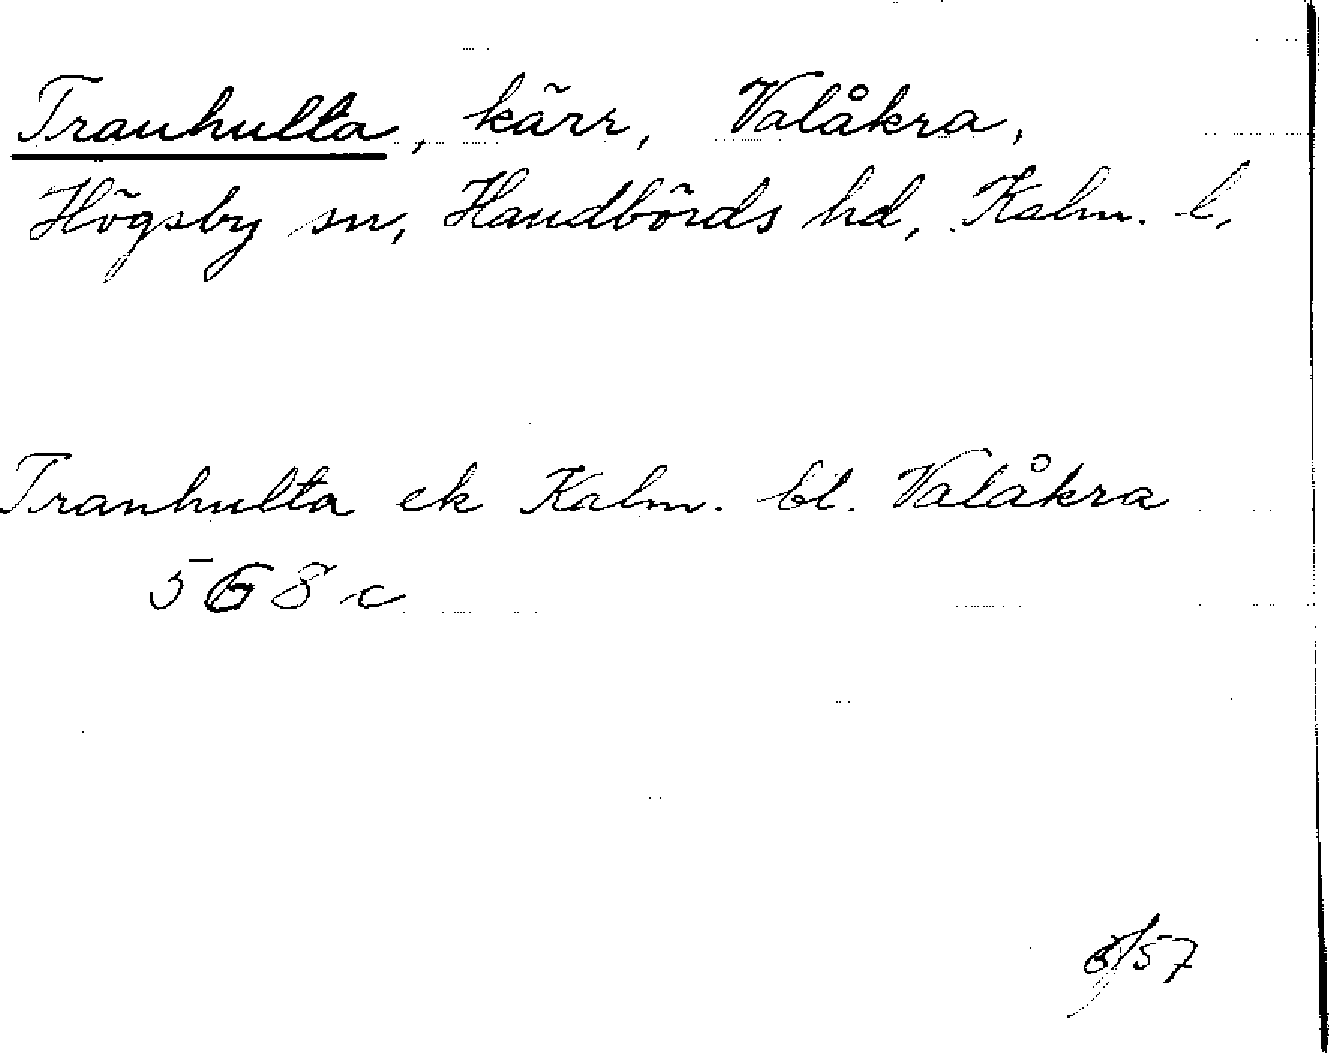 Tranhulta, kärr, Valåkra,
Högsby sn, Handbörds hd, Kalm. l.
Tranhulta ek Kalm. bl. Valåkra
568 c
8/57